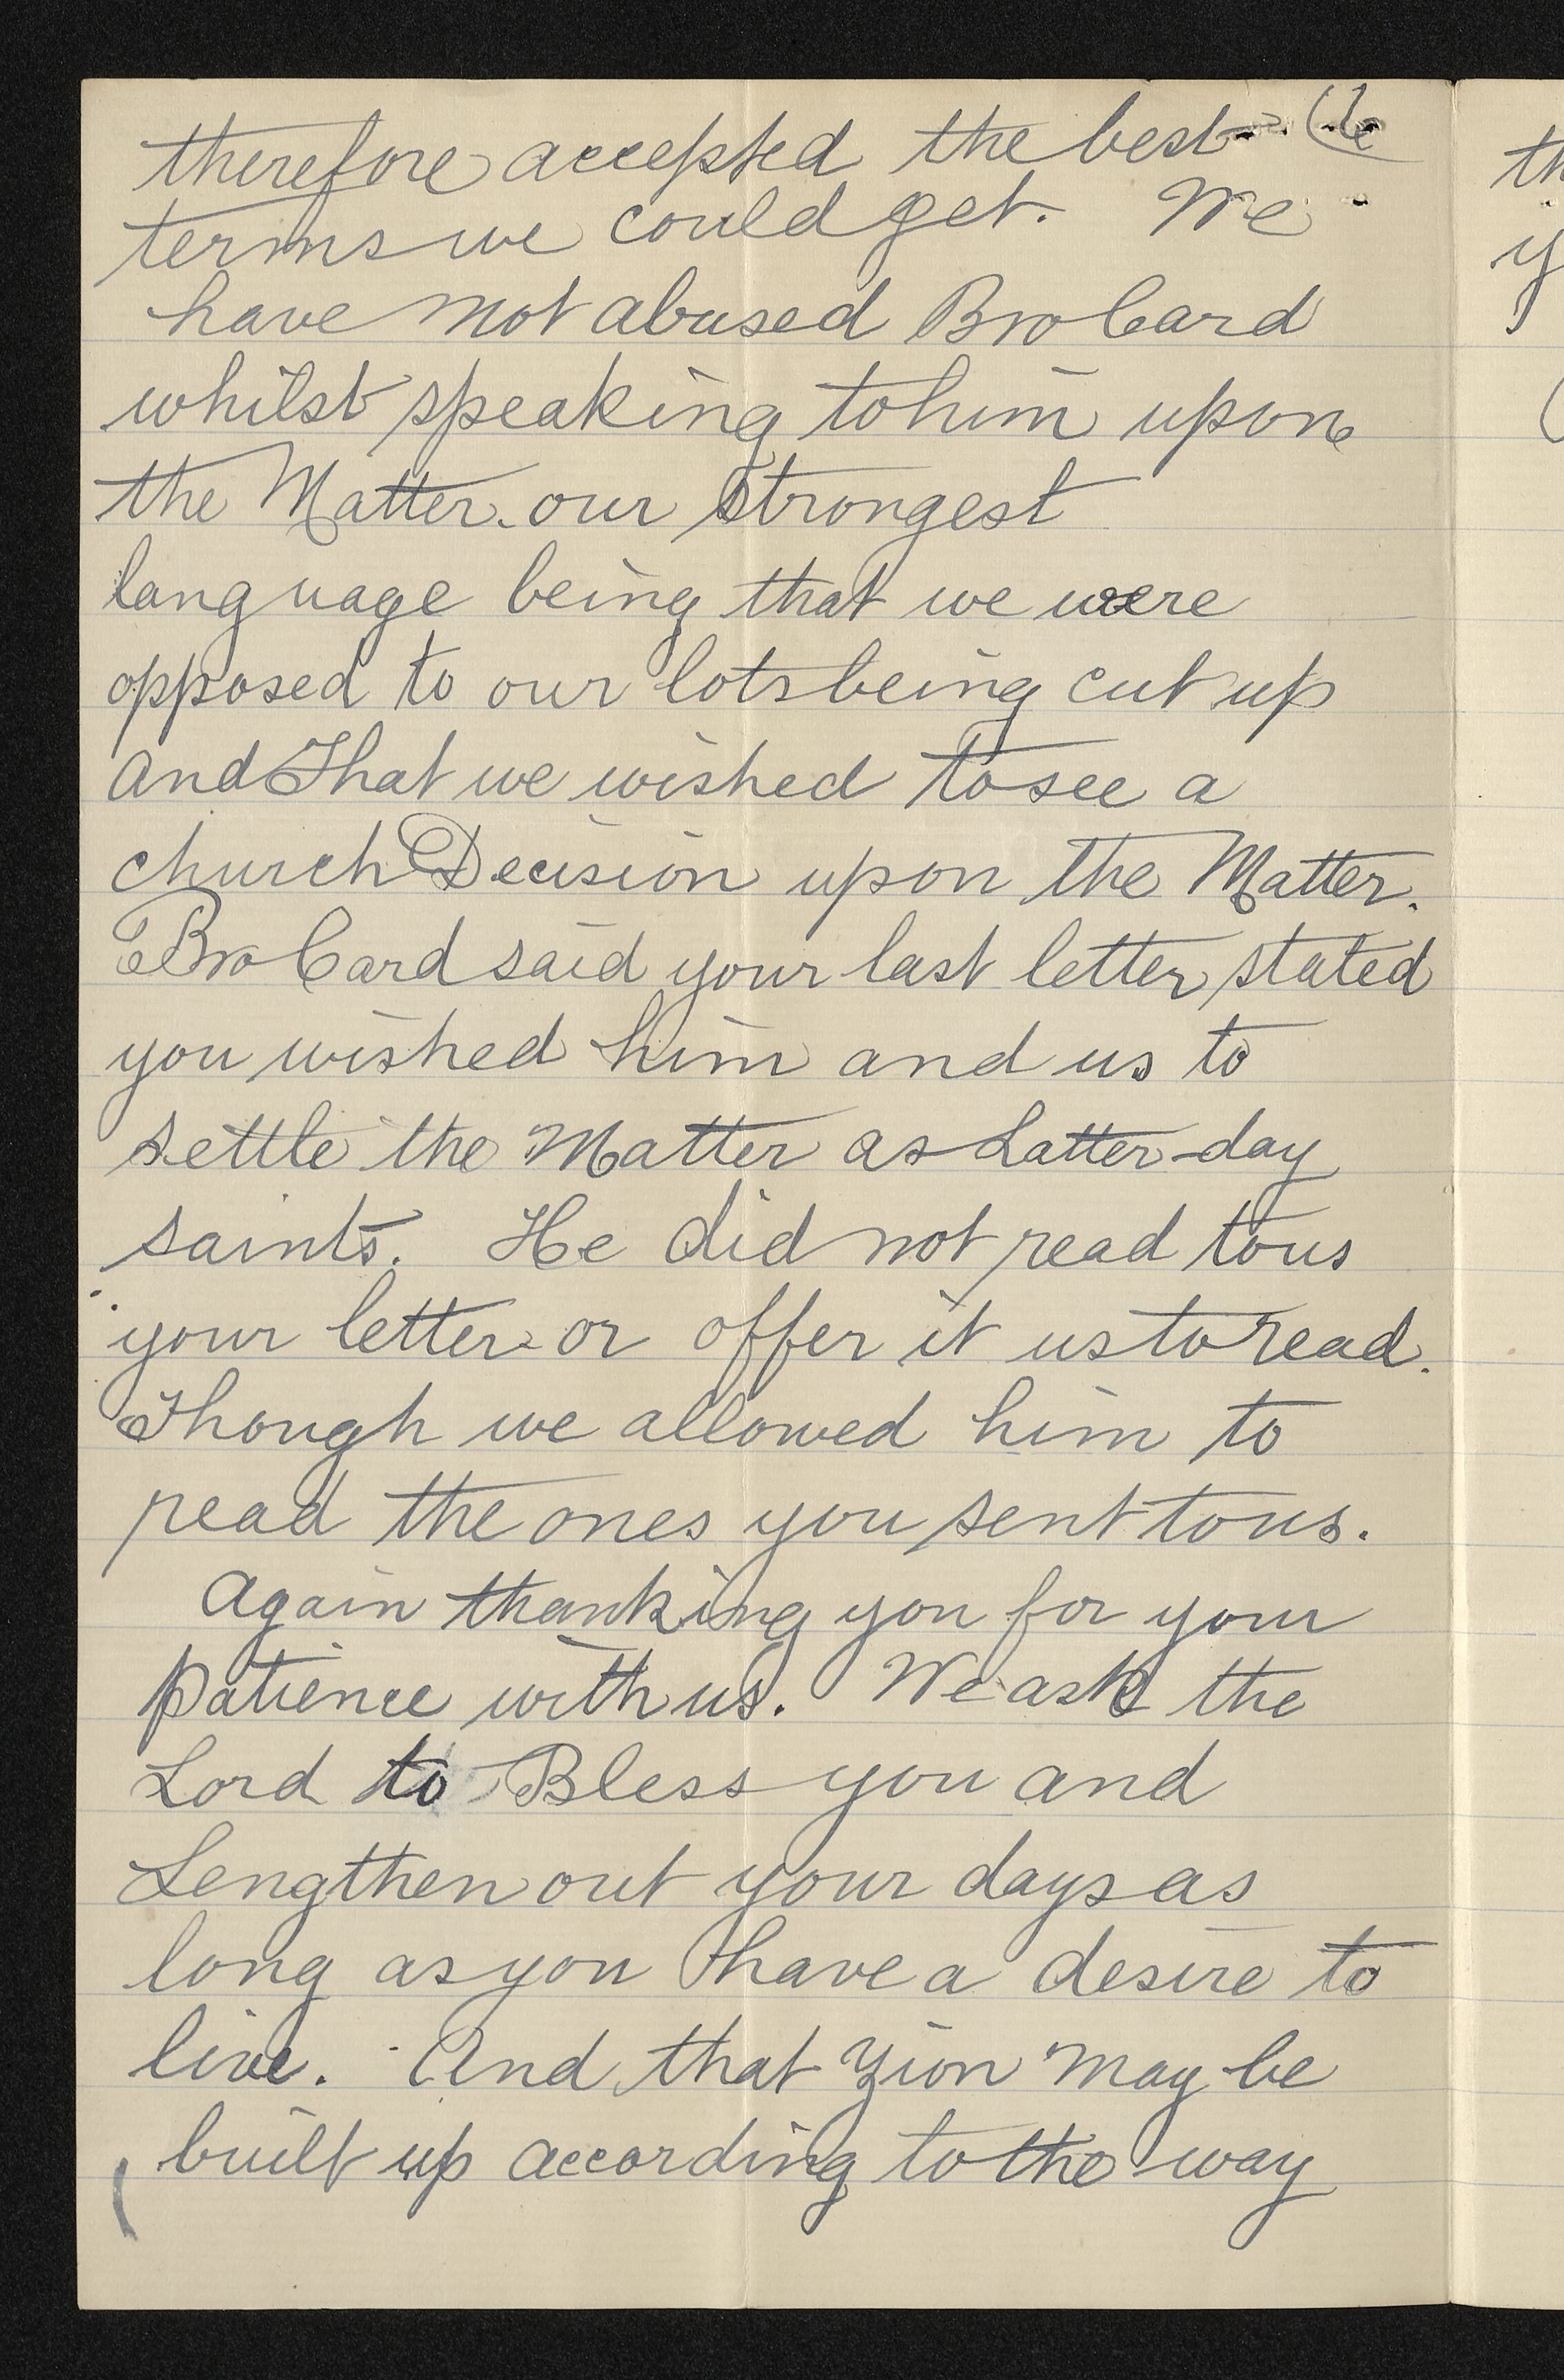 therefore accepted the best
terms we could get. We
have not abused Bro Card
whilst speaking to him upon
the Matter. our strongest
language being that we were
opposed to our lots being cut up
and That we wished to see a
church Decision upon the Matter.
Bro Card said your last letter stated
you wished him and us to
settle the Matter as Latter-day
saints. He did not read to us
your letter or offer it us to read.
Though we allowed him to
read the ones you sent to us.
Again thanking you for your
Patience with us. We ask the
Lord to Bless you and
Lengthen out your days as
long as you have a desire to
live. And that Zion May be
built up according to the way